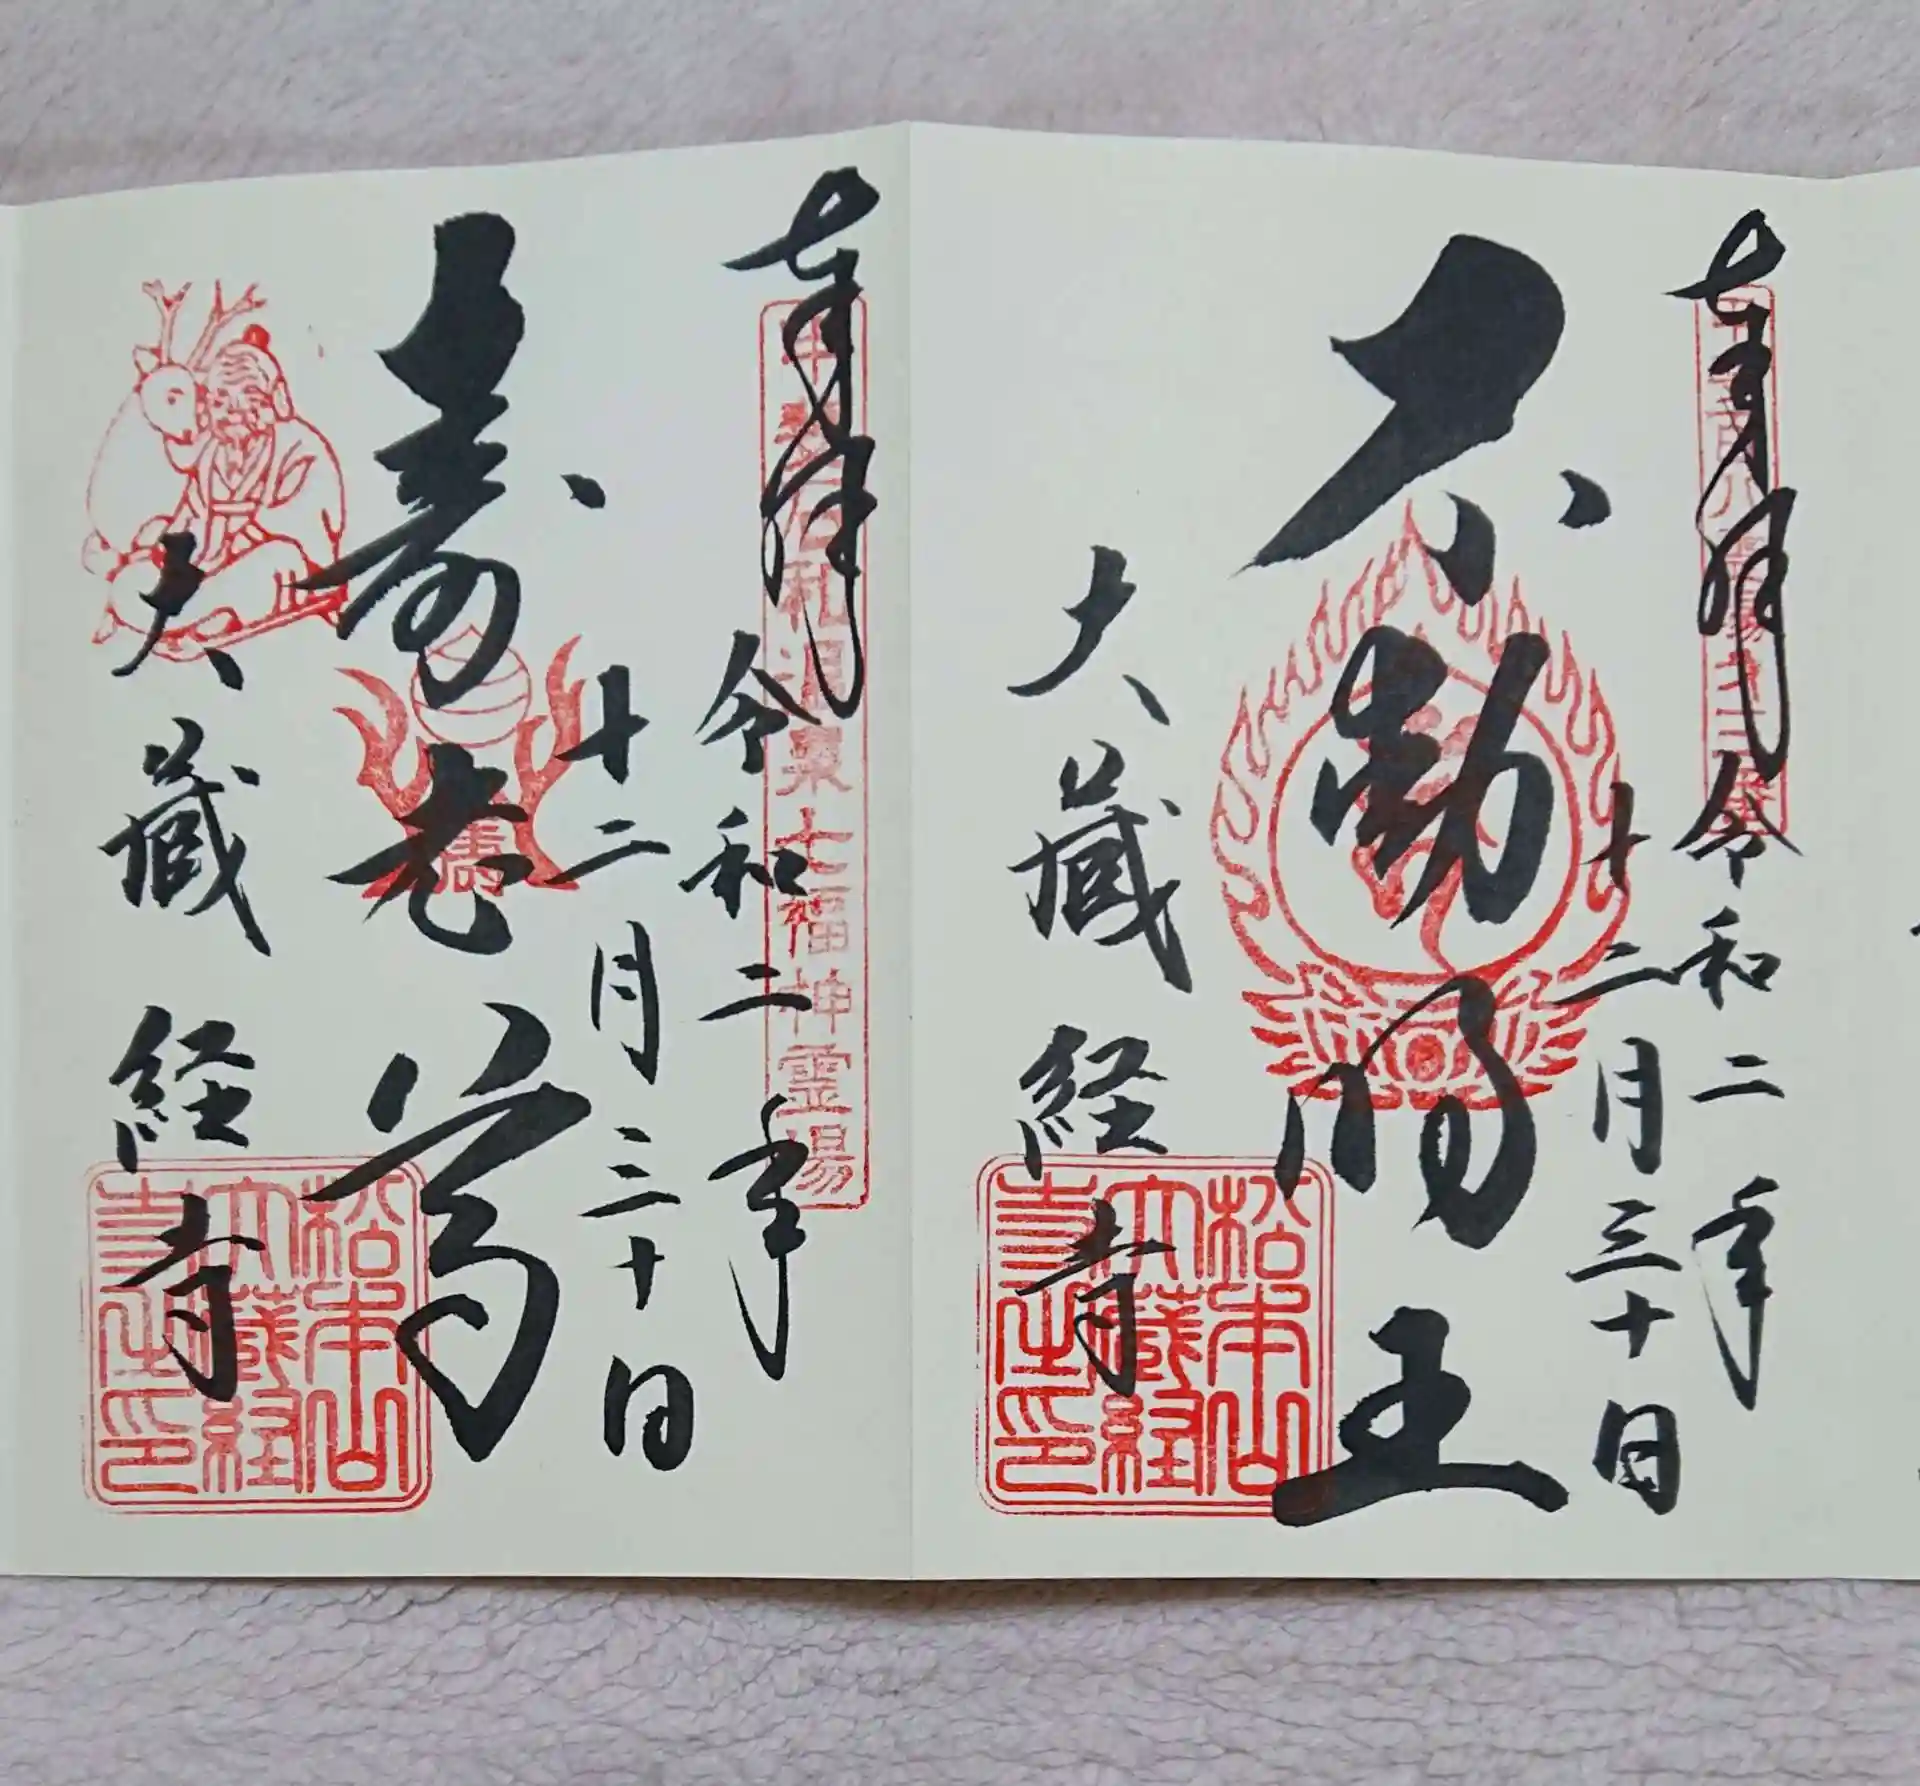 奉拝
令和二年
十二月三十日
不動明王
大蔵経寺
松本山
大蔵経
寺之印
奉拝
甲斐石和温泉七福神霊場
令和二年
十二月三十日
寿老尊
寿
大蔵経寺
松本山
大蔵経
寺之印